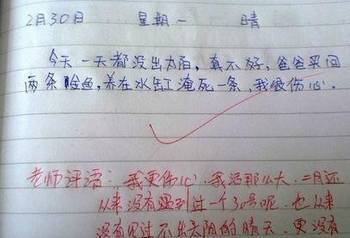 2月30日 星期一 晴
今天一天都没出太阳，真不好，爸爸买回
两条金鱼，养在水缸淹死一条，我很伤心.
老师评语：我更伤心.我活那么大，二月还
从来没有遇到过一个30号呢，也从来
没有见过不出太阳的晴天，更没有